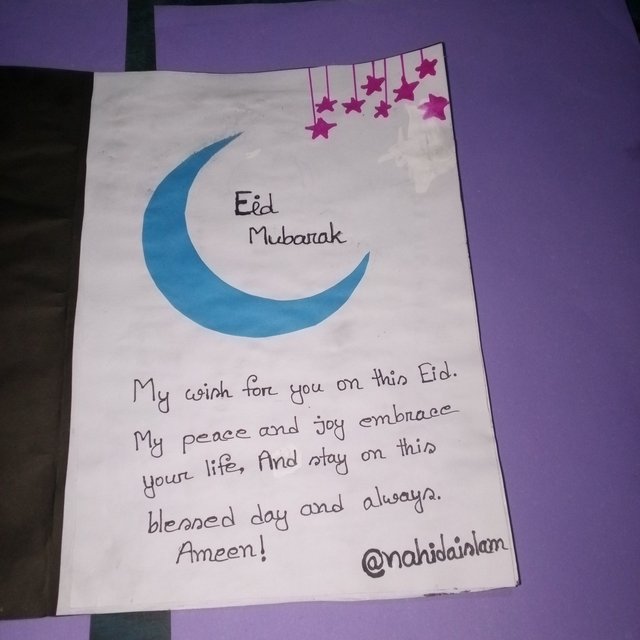 Eid
Mubarak
My wish for you on this Eid.
My peace and joy embrace
your life, And stay on this
blessed day and always.
Ameen!
@nahidaislam